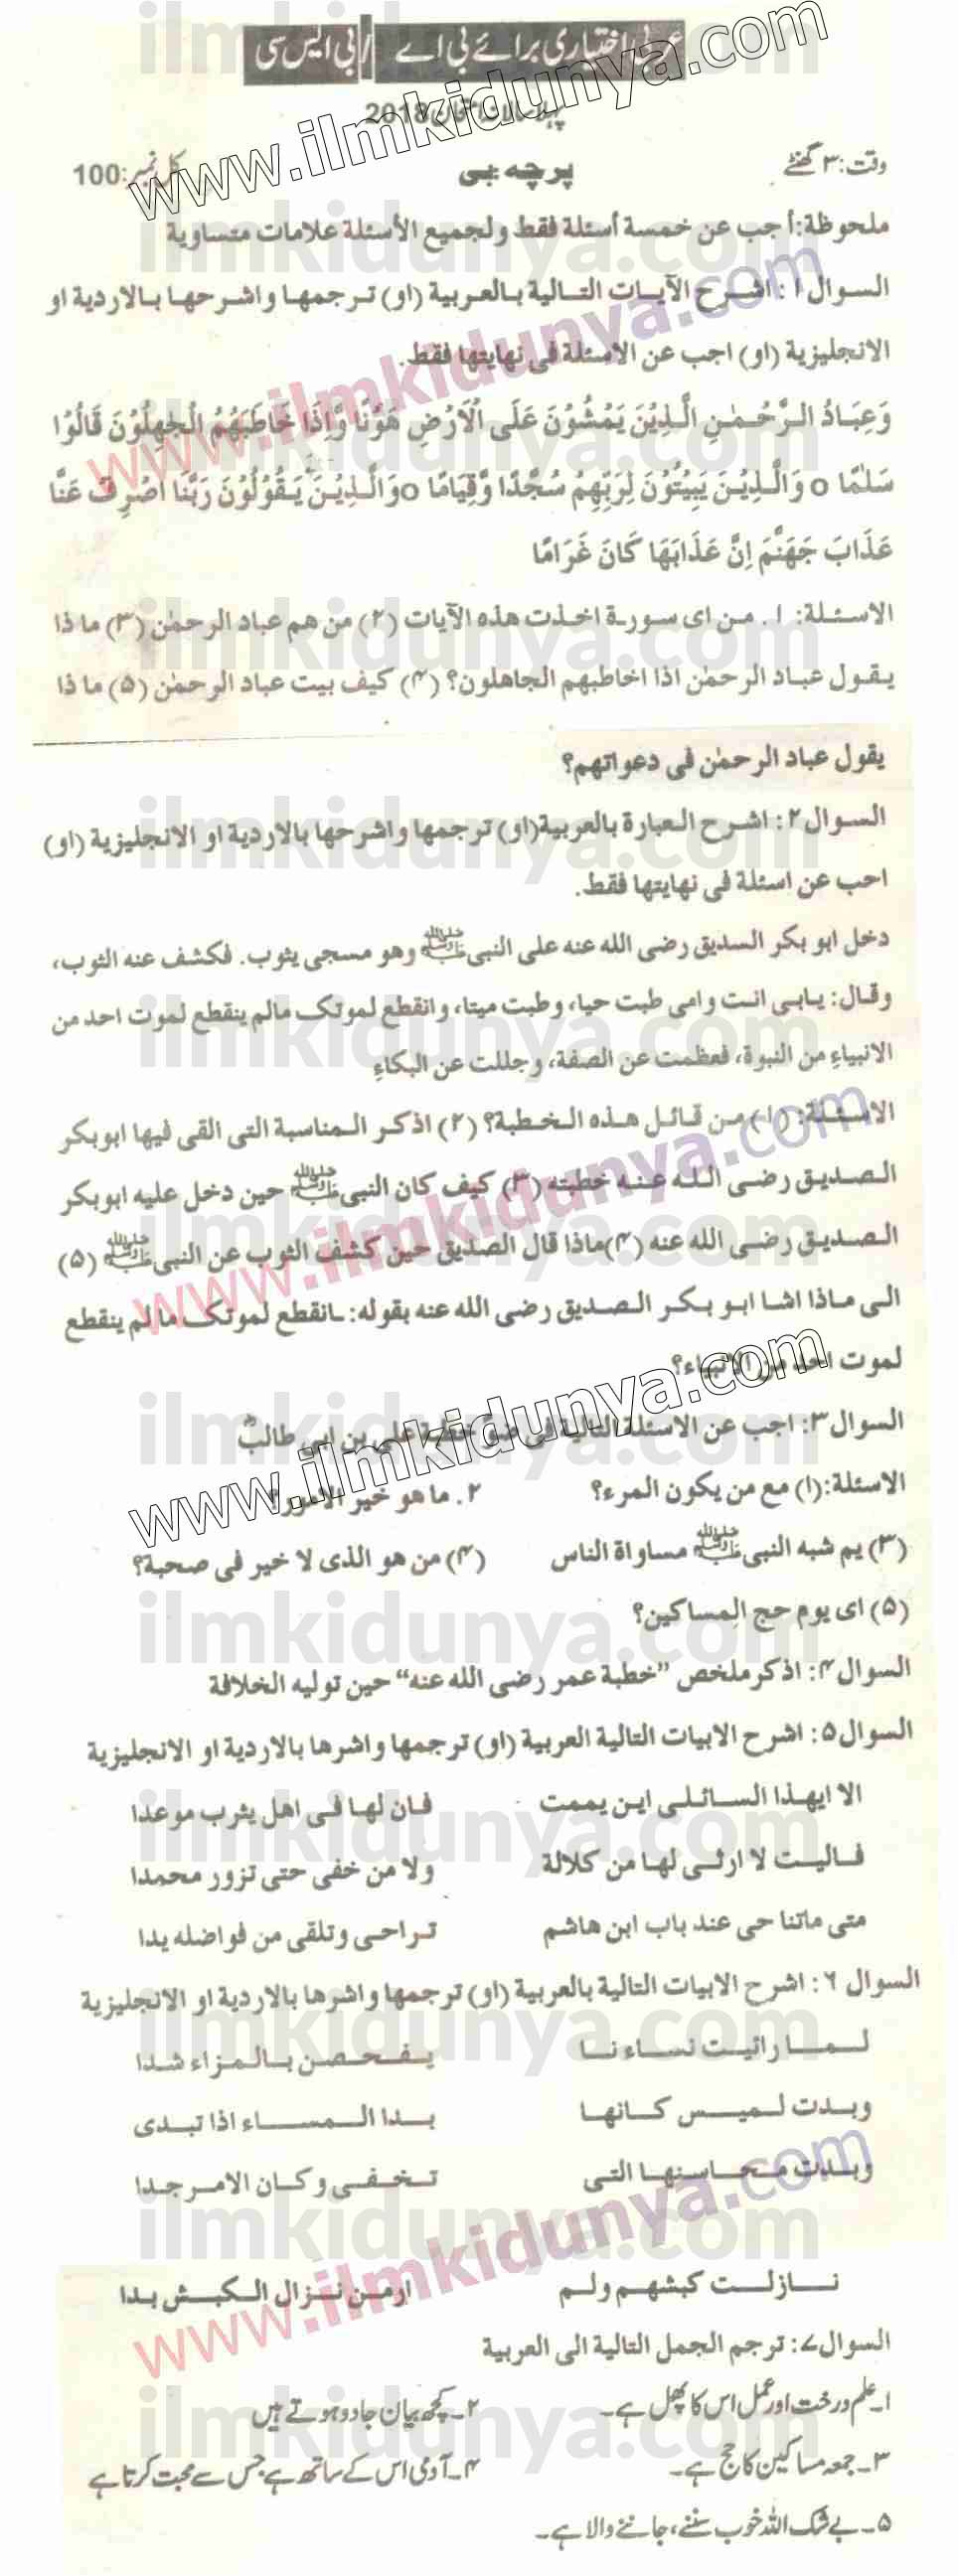 عربی اختیاری برائے بی اے / بی ایس سی
پہلا سالانہ امتحان 2018
وقت: ۳ گھنٹے پرچہ بی کل نمبر: 100
ملحوظة: أجب عن خمسة أسئلة فقط ولجميع الأسئلة علامات متساوية
السوال ا: اشرح الآيات التالية بالعربية (او) ترجمها واشرحها بالاردية او
الانجليزية (او) اجب عن الاسئلة فى نهايتها فقط.
وَعِبَادُ الرَّحْمٰنِ الَّذِيْنَ يَمْشُوْنَ عَلَى الْاَرْضِ هَوْنًا وَّاِذَا خَاطَبَهُمُ الْجٰهِلُوْنَ قَالُوْا
سَلٰمًا o وَالَّذِيْنَ يَبِيْتُوْنَ لِرَبِّهِمْ سُجَّدًا وَّقِيَامًا o وَالَّذِيْنَ يَقُوْلُوْنَ رَبَّنَا اصْرِفْ عَنَّا
عَذَابَ جَهَنَّمَ اِنَّ عَذَابَهَا كَانَ غَرَامًا
الاسئلة: ا. من اى سورة اخذت هذه الآيات (۲) من هم عباد الرحمٰن (۳) ما ذا
يقول عباد الرحمٰن اذا اخاطبهم الجاهلون؟ (۴) كيف بيت عباد الرحمٰن (۵) ما ذا
يقول عباد الرحمٰن فى دعواتهم؟
السوال ۲: اشرح العبارة بالعربية (او) ترجمها واشرحها بالاردية او الانجليزية (او)
احب عن اسئلة فى نهايتها فقط.
دخل ابو بكر السديق رضى الله عنه على النبى ﷺ وهو مسجى يثوب. فكشف عنه الثوب،
وقال: يابى انت وامى طبت حيا، وطبت ميتا، وانقطع لموتك مالم ينقطع لموت احد من
الانبياءِ من النبوة، فعظمت عن الصفة، وجللت عن البكاءِ
الاسئلة: (ا) من قائل هذه الخطبة؟ (۲) اذكر المناسبة التى القى فيها ابوبكر
الصديق رضى الله عنه خطبته (۳) كيف كان النبى ﷺ حين دخل عليه ابوبكر
الصديق رضى الله عنه (۴) ماذا قال الصديق حين كشف الثوب عن النبى ﷺ (۵)
الى ماذا اشا ابو بكر الصديق رضى الله عنه بقوله: ـانقطع لموتك مالم ينقطع
لموت احد من الانبياء؟
السوال ۳: اجب عن الاسئلة التالية فى ضؤ خطبة على بن ابى طالبؓ
الاسئلة: (ا) مع من يكون المرء؟ ۲. ما هو خير الامور؟
(۳) يم شبه النبى ﷺ مساواة الناس (۴) من هو الذى لا خير فى صحبة؟
(۵) اى يوم حج المساكين؟
السوال ۴: اذكر ملخص ”خطبة عمر رضى الله عنه“ حين توليه الخلافة
السوال ۵: اشرح الابيات التالية العربية (او) ترجمها واشرها بالاردية او الانجليزية
الا ايهذا السائلى اين يممت فان لها فى اهل يثرب موعدا
فاليت لا ارثى لها من كلالة ولا من خفى حتى تزور محمدا
متى ماتنا حى عند باب ابن هاشم تراحى وتلقى من فواضله يدا
السوال ۶: اشرح الابيات التالية بالعربية (او) ترجمها واشرها بالاردية او الانجليزية
لما رائيت نساء نا يفحصن بالمزاء شدا
وبدت لميس كانها بدا المساء اذا تبدى
وبدت محاسنها التى تخفى وكان الامر جدا
نازلت كبشهم ولم ارمن نزال الكبش بدا
السوال ۷: ترجم الجمل التالية الى العربية
۱۔ علم درخت اور عمل اس کا پھل ہے۔ ۲۔ کچھ بیان جادو ہوتے ہیں
۳۔ جمعہ مساکین کا حج ہے۔ ۴۔ آدمی اس کے ساتھ ہے جس سے محبت کرتا ہے
۵۔ بے شک اللہ خوب سننے، جاننے والا ہے۔
www.ilmkidunya.com